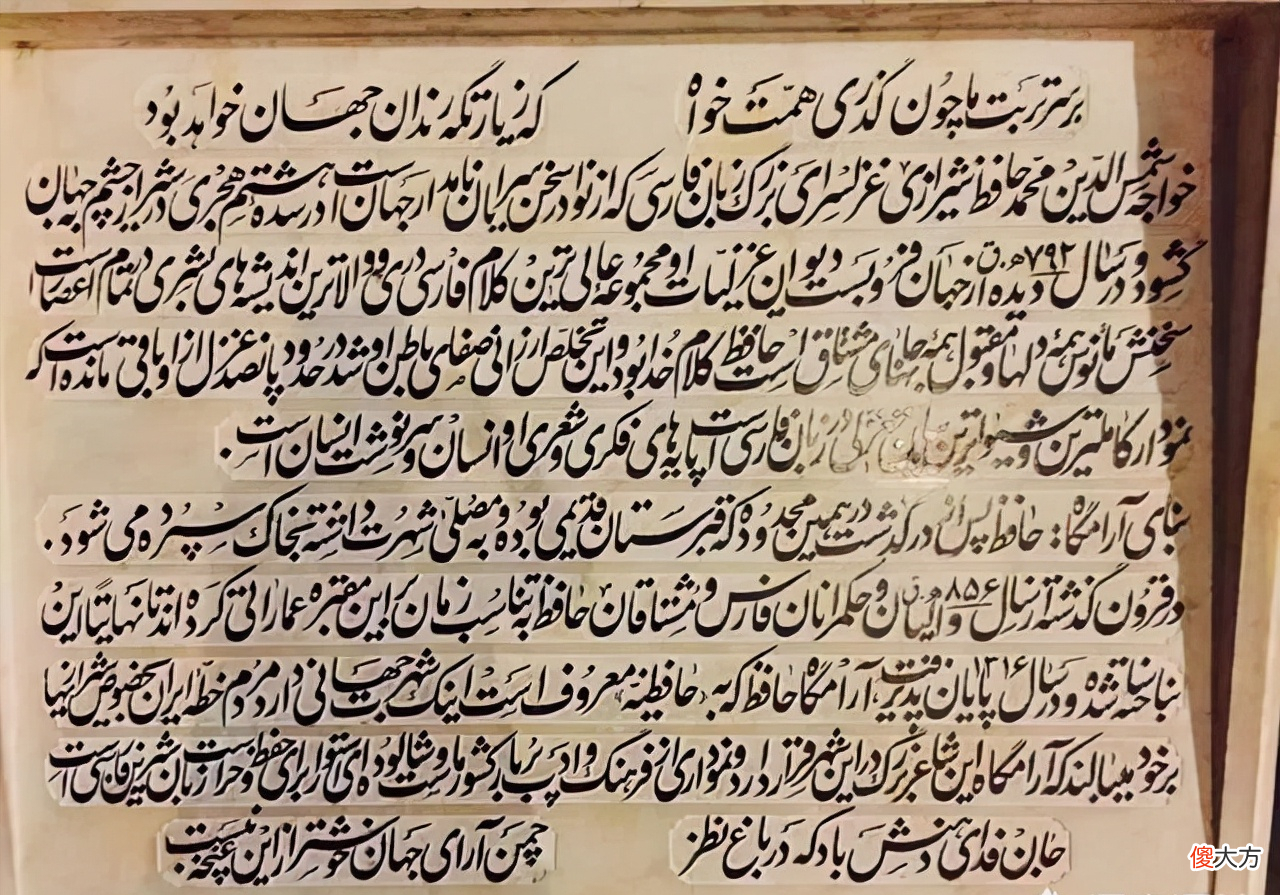 بر سر تربت ما چون گذری همّت خواه که زیارتگه رندان جهان خواهد بود
خواجه شمس الدّین محمّد حافظ شیرازی غزلسرای بزرگ زبان فارسی که از نوادر سخن سرایان نامدار جهان است در سده هشتم هجری در شیراز چشم به جهان
گشود و در سال ۷۹۲ ه.ق دیده از جهان فرو بست دیوان غزلیات او مجموعه عالی ترین کلام فارسی دری و والاترین اندیشه های بشری در تمام اعصار است
سخنش مأنوس همه دلها و مقبول همه جانهای مشتاق است حافظ کلام خدا بود و این تخلص ارزانی صفای باطن او شد در حدود پانصد غزل از او باقی مانده است که
نمودار کاملترین و شیواترین غزل در زبان فارسی است پایه های فکری و شعری او انسان و سرنوشت انسان است .
بنای آرامگاه : حافظ پس از درگذشت در همین محدوده که قبرستان قدیمی بوده و به مصلّی شهرت داشته بخاک سپرده می شود .
در قرون گذشته از سال ۸۵۶ ه.ق والیان و حکمرانان فارس و مشتاقان حافظ به تناسب زمان بر این مقبره عماراتی کرده اند تا نهایتا این
بنا ساخته شده و در سال ۱۳۱۶ پایان پذیرفت، آرامگاه حافظ که به حافظیّه معروف است اینک شهرت جهانی دارد مردم خطّه ایران بخصوص شیرازیها
بر خود میبالند که آرامگاه این شاعر بزرگ در این شهر قرار دارد و نموداری از فرهنگ و ادب پربار کشور ماست و شالوده ای استوار برای حفظ و حراست زبان شیرین فارسی است
جان فدای دهنش باد که در باغ نظر چمن آرای جهان خوشتر از این غنچه نبست
傻大方